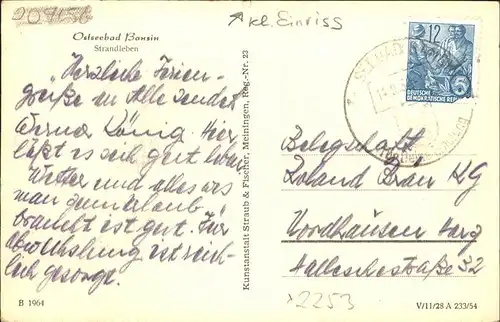 209156
kl. Einriss
Ostseebad Bansin
Strandleben
"Herzliche Ferien-
grüße an Alle sendet
Werner König. Hier
läßt es sich gut leben
Wetter und alles was
man zum Urlaub
braucht ist gut. Für
Abwechslung ist reich-
lich gesorgt.
B 1964
Kunstanstalt Straub & Fischer, Meiningen, Reg.-Nr. 23
12
DEUTSCHE
DEMOKRATISCHE REP
Belegschaft
Roland Bräu KG
Nordhausen Harz
Hallesche Straße 32
2253
V/11/28 A 233/54